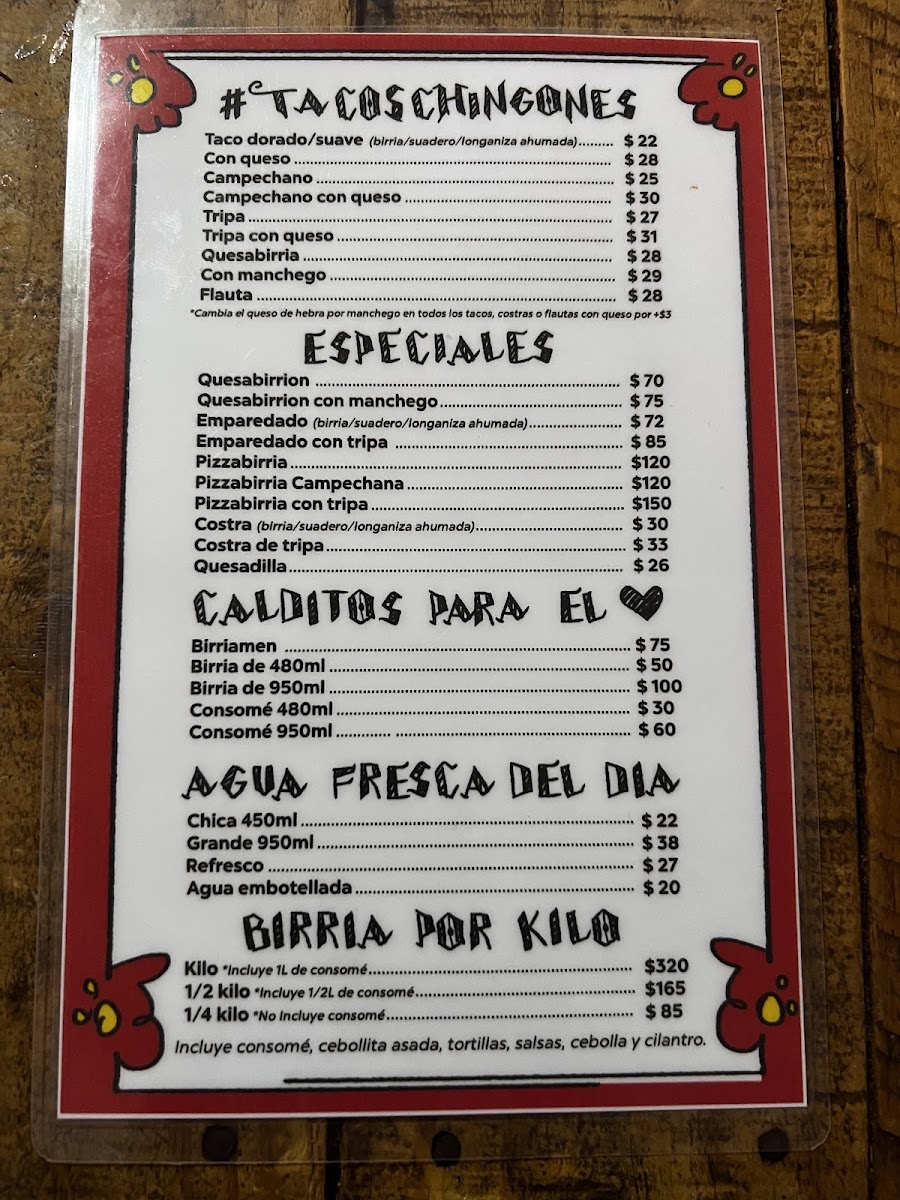 #TACOSCHINGONES
Taco dorado/suave (birria/suadero/longaniza ahumada)......... $ 22
Con queso ........ $ 28
Campechano ........ $ 25
Campechano con queso ........ $ 30
Tripa ........ $ 27
Tripa con queso ........ $ 31
Quesabirria ........ $ 28
Con manchego ........ $ 29
Flauta ........ $ 28
*Cambia el queso de hebra por manchego en todos los tacos, costras o flautas con queso por +$3
ESPECIALES
Quesabirrion ........ $ 70
Quesabirrion con manchego........ $ 75
Emparedado (birria/suadero/longaniza ahumada)........ $ 72
Emparedado con tripa ........ $ 85
Pizzabirria ........ $120
Pizzabirria Campechana ........ $120
Pizzabirria con tripa ........ $150
Costra (birria/suadero/longaniza ahumada)........ $ 30
Costra de tripa........ $ 33
Quesadilla........ $ 26
CALDITOS PARA EL ♥
Birriamen ........ $ 75
Birria de 480ml ........ $ 50
Birria de 950ml ........ $ 100
Consomé 480ml ........ $ 30
Consomé 950ml ........ $ 60
AGUA FRESCA DEL DIA
Chica 450ml ........ $ 22
Grande 950ml ........ $ 38
Refresco ........ $ 27
Agua embotellada ........ $ 20
BIRRIA POR KILO
Kilo *Incluye 1L de consomé........ $320
1/2 kilo *Incluye 1/2L de consomé........ $165
1/4 kilo *No Incluye consomé........ $ 85
Incluye consomé, cebollita asada, tortillas, salsas, cebolla y cilantro.